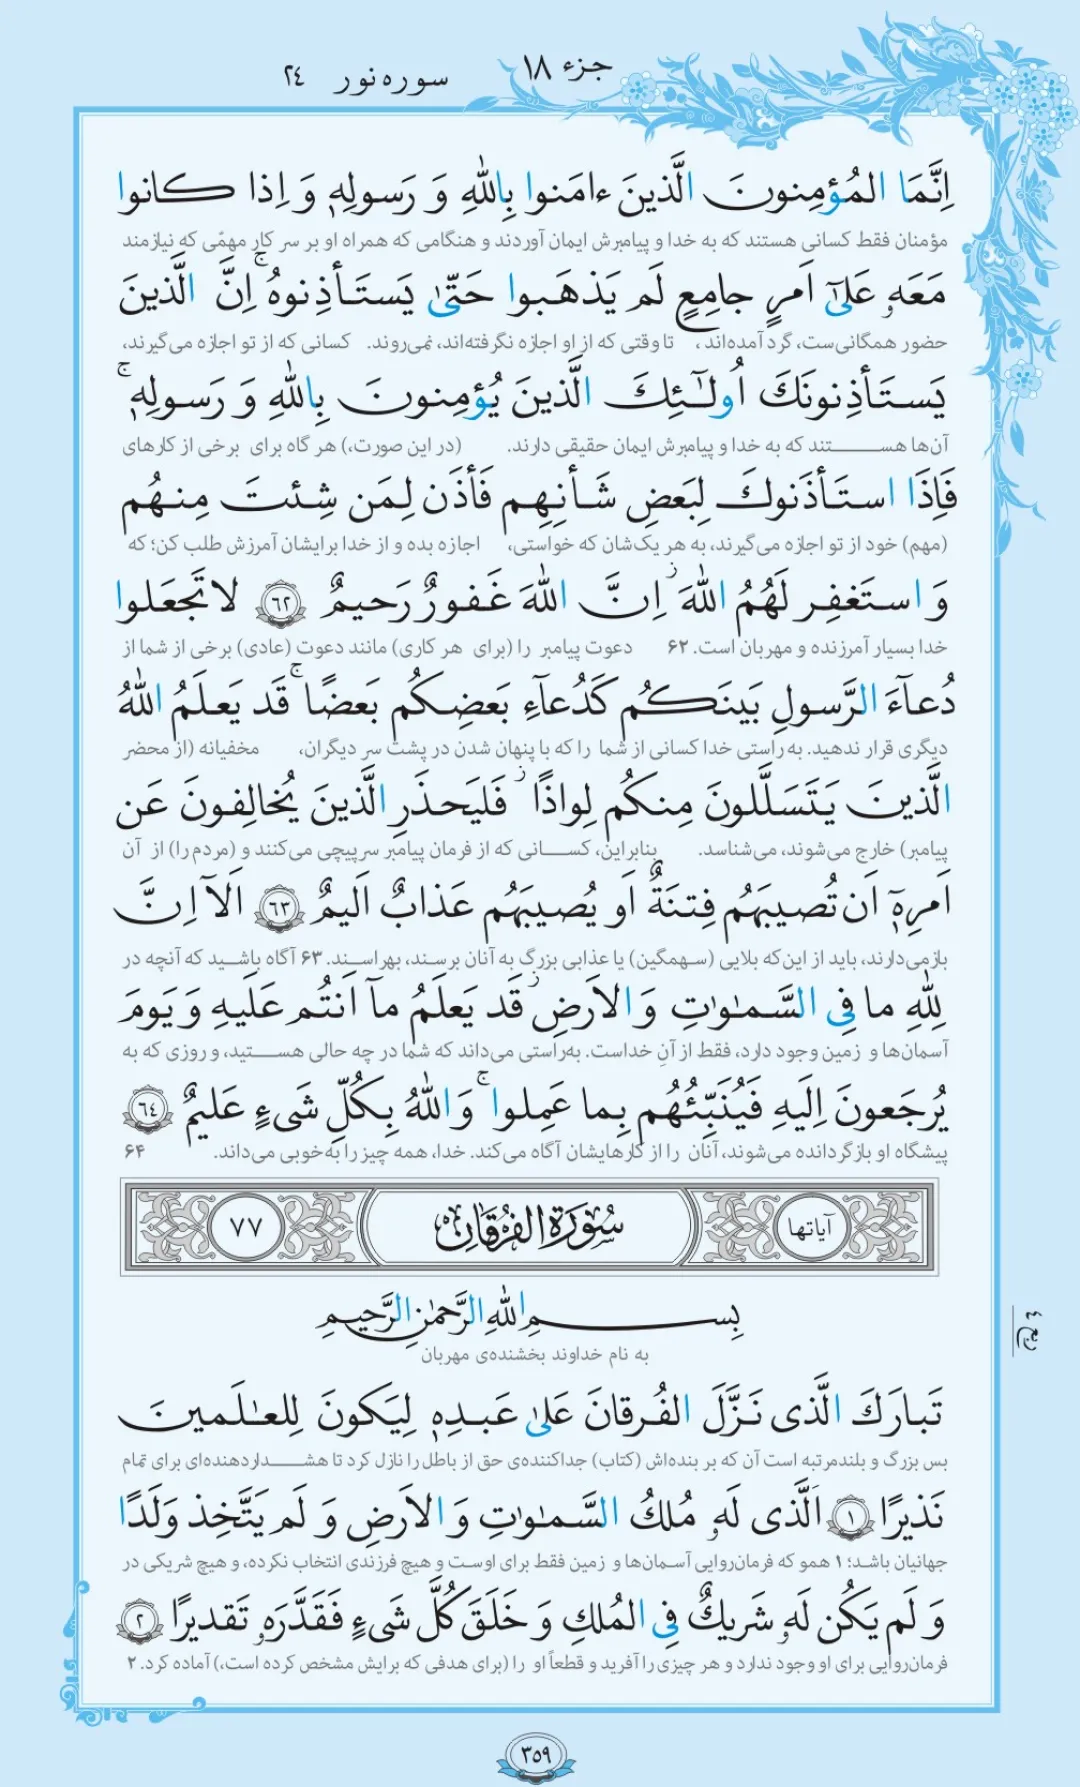 جزء ۱۸
سوره نور ۲۴
اِنَّمَا المُؤمِنونَ الَّذینَ ءامَنوا بِاللّٰهِ وَ رَسولِهٖ وَ اِذا کانوا
مؤمنان فقط کسانی هستند که به خدا و پیامبرش ایمان آوردند و هنگامی که همراه او بر سر کارِ مهمّی که نیازمند
مَعَهٗ عَلیٰٓ اَمرٍ جامِعٍ لَم یَذهَبوا حَتّیٰ یَستَأذِنوهُ ۚ اِنَّ الَّذینَ
حضور همگانی‌ست، گرد آمده‌اند، تا وقتی که از او اجازه نگرفته‌اند، نمی‌روند. کسانی که از تو اجازه می‌گیرند،
یَستَأذِنونَکَ اُولٰٓئِكَ الَّذینَ یُؤمِنونَ بِاللّٰهِ وَ رَسولِهٖ ۚ
آن‌ها هستند که به خدا و پیامبرش ایمان حقیقی دارند. (در این صورت،) هر گاه برای برخی از کارهای
فَاِذَا استَأذَنوكَ لِبَعضِ شَأنِهِم فَأذَن لِمَن شِئتَ مِنهُم
(مهم) خود از تو اجازه می‌گیرند، به هر یک‌شان که خواستی، اجازه بده و از خدا برایشان آمرزش طلب کن؛ که
وَ استَغفِر لَهُمُ اللّٰهَ ۗ اِنَّ اللّٰهَ غَفورٌ رَحیمٌ ۶۲ لا تَجعَلوا
خدا بسیار آمرزنده و مهربان است. ۶۲ دعوت پیامبر را (برای هر کاری) مانند دعوت (عادی) برخی از شما از
دُعآءَ الرَّسولِ بَینَکُم کَدُعآءِ بَعضِکُم بَعضًا ۚ قَد یَعلَمُ اللّٰهُ
دیگری قرار ندهید. به‌راستی خدا کسانی از شما را که با پنهان شدن در پشت سر دیگران، مخفیانه (از محضر
الَّذینَ یَتَسَلَّلونَ مِنکُم لِواذًا ۚ فَلیَحذَرِ الَّذینَ یُخالِفونَ عَن
پیامبر) خارج می‌شوند، می‌شناسد. بنابراین، کسانی که از فرمان پیامبر سرپیچی می‌کنند و (مردم را) از آن
اَمرِهٖٓ اَن تُصیبَهُم فِتنَةٌ اَو یُصیبَهُم عَذابٌ اَلیمٌ ۶۳ اَلآ اِنَّ
بازمی‌دارند، باید از این‌که بلایی (سهمگین) یا عذابی بزرگ به آنان برسند، بهراسند. ۶۳ آگاه باشید که آنچه در
لِلّٰهِ ما فِی السَّمٰوٰتِ وَ الاَرضِ ۖ قَد یَعلَمُ مآ اَنتُم عَلَیهِ وَ یَومَ
آسمان‌ها و زمین وجود دارد، فقط از آنِ خداست. به‌راستی می‌داند که شما در چه حالی هستید، و روزی که به
یُرجَعونَ اِلَیهِ فَیُنَبِّئُهُم بِما عَمِلوا ۚ وَ اللّٰهُ بِکُلِّ شَیءٍ عَلیمٌ ۶۴
پیشگاه او بازگردانده می‌شوند، آنان را از کارهایشان آگاه می‌کند. خدا، همه چیز را به‌خوبی می‌داند. ۶۴
آیاتها سُورَةُ الفُرقَانِ ۷۷
بِسمِ اللّٰهِ الرَّحمٰنِ الرَّحیمِ
به نام خداوند بخشنده‌ی مهربان
ربع ٤
تَبارَكَ الَّذی نَزَّلَ الفُرقانَ عَلیٰ عَبدِهٖ لِیَکونَ لِلعٰلَمینَ
بس بزرگ و بلندمرتبه است آن که بر بنده‌اش (کتاب) جداکننده‌ی حق از باطل را نازل کرد تا هشداردهنده‌ای برای تمام
نَذیرًا ۱ اَلَّذی لَهٗ مُلكُ السَّمٰوٰتِ وَ الاَرضِ وَ لَم یَتَّخِذ وَلَدًا
جهانیان باشد؛ ۱ همو که فرمان‌روایی آسمان‌ها و زمین فقط برای اوست و هیچ فرزندی انتخاب نکرده، و هیچ شریکی در
وَ لَم یَکُن لَهٗ شَریكٌ فِی المُلكِ وَ خَلَقَ کُلَّ شَیءٍ فَقَدَّرَهٗ تَقدیرًا ۲
فرمان‌روایی برای او وجود ندارد و هر چیزی را آفرید و قطعاً او را (برای هدفی که برایش مشخص کرده است،) آماده کرد. ۲
۳۵۹